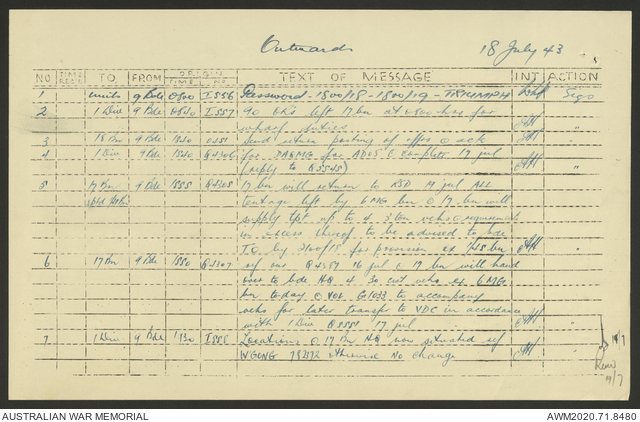 Outwards 18 July 43
NO TIME REC'D TO FROM ORIGIN TIME NO. TEXT OF MESSAGE INT ACTION
1 units 9 Bde 0800 I556 Password - 1800/18 - 1800/19 - TRIUMPH Sigs
2 1 Div 9 Bde 0840 I557 90 ORs left 17 bn at 0800 hrs for
wharf duties
3 18 Bn 9 Bde 1840 send return posting of offrs O ack
4 1 Div 9 Bde 1540 for DAQMG for ADOS O complete 17 jul
(reply to Q5545)
5 17 Bn 9 Bde 1555 Q4305 17 bn will return to RSD 19 jul ALL
tentage left by 6 MG bn O 17 bn will
supply tpt up to 4 3 ton vehs O requirements
in excess thereof to be advised to bde
TO by 2100/18 for provision ex 1/45 bn
6 17 Bn 9 Bde 1550 Q4307 ref our Q4257 16 jul O 17 bn will hand
over to bde HQ 4 30 cwt vehs ex 6 MG
bn today O VOR G1033 to accompany
vehs for later transfer to VDC in accordance
with 1 Div Q5551 17 jul
7 1 Div 9 Bde 1130 I558 Locations O 17 Bn HQ now situated ref
WGONG 752172 otherwise No change
AUSTRALIAN WAR MEMORIAL AWM2020.71.8480